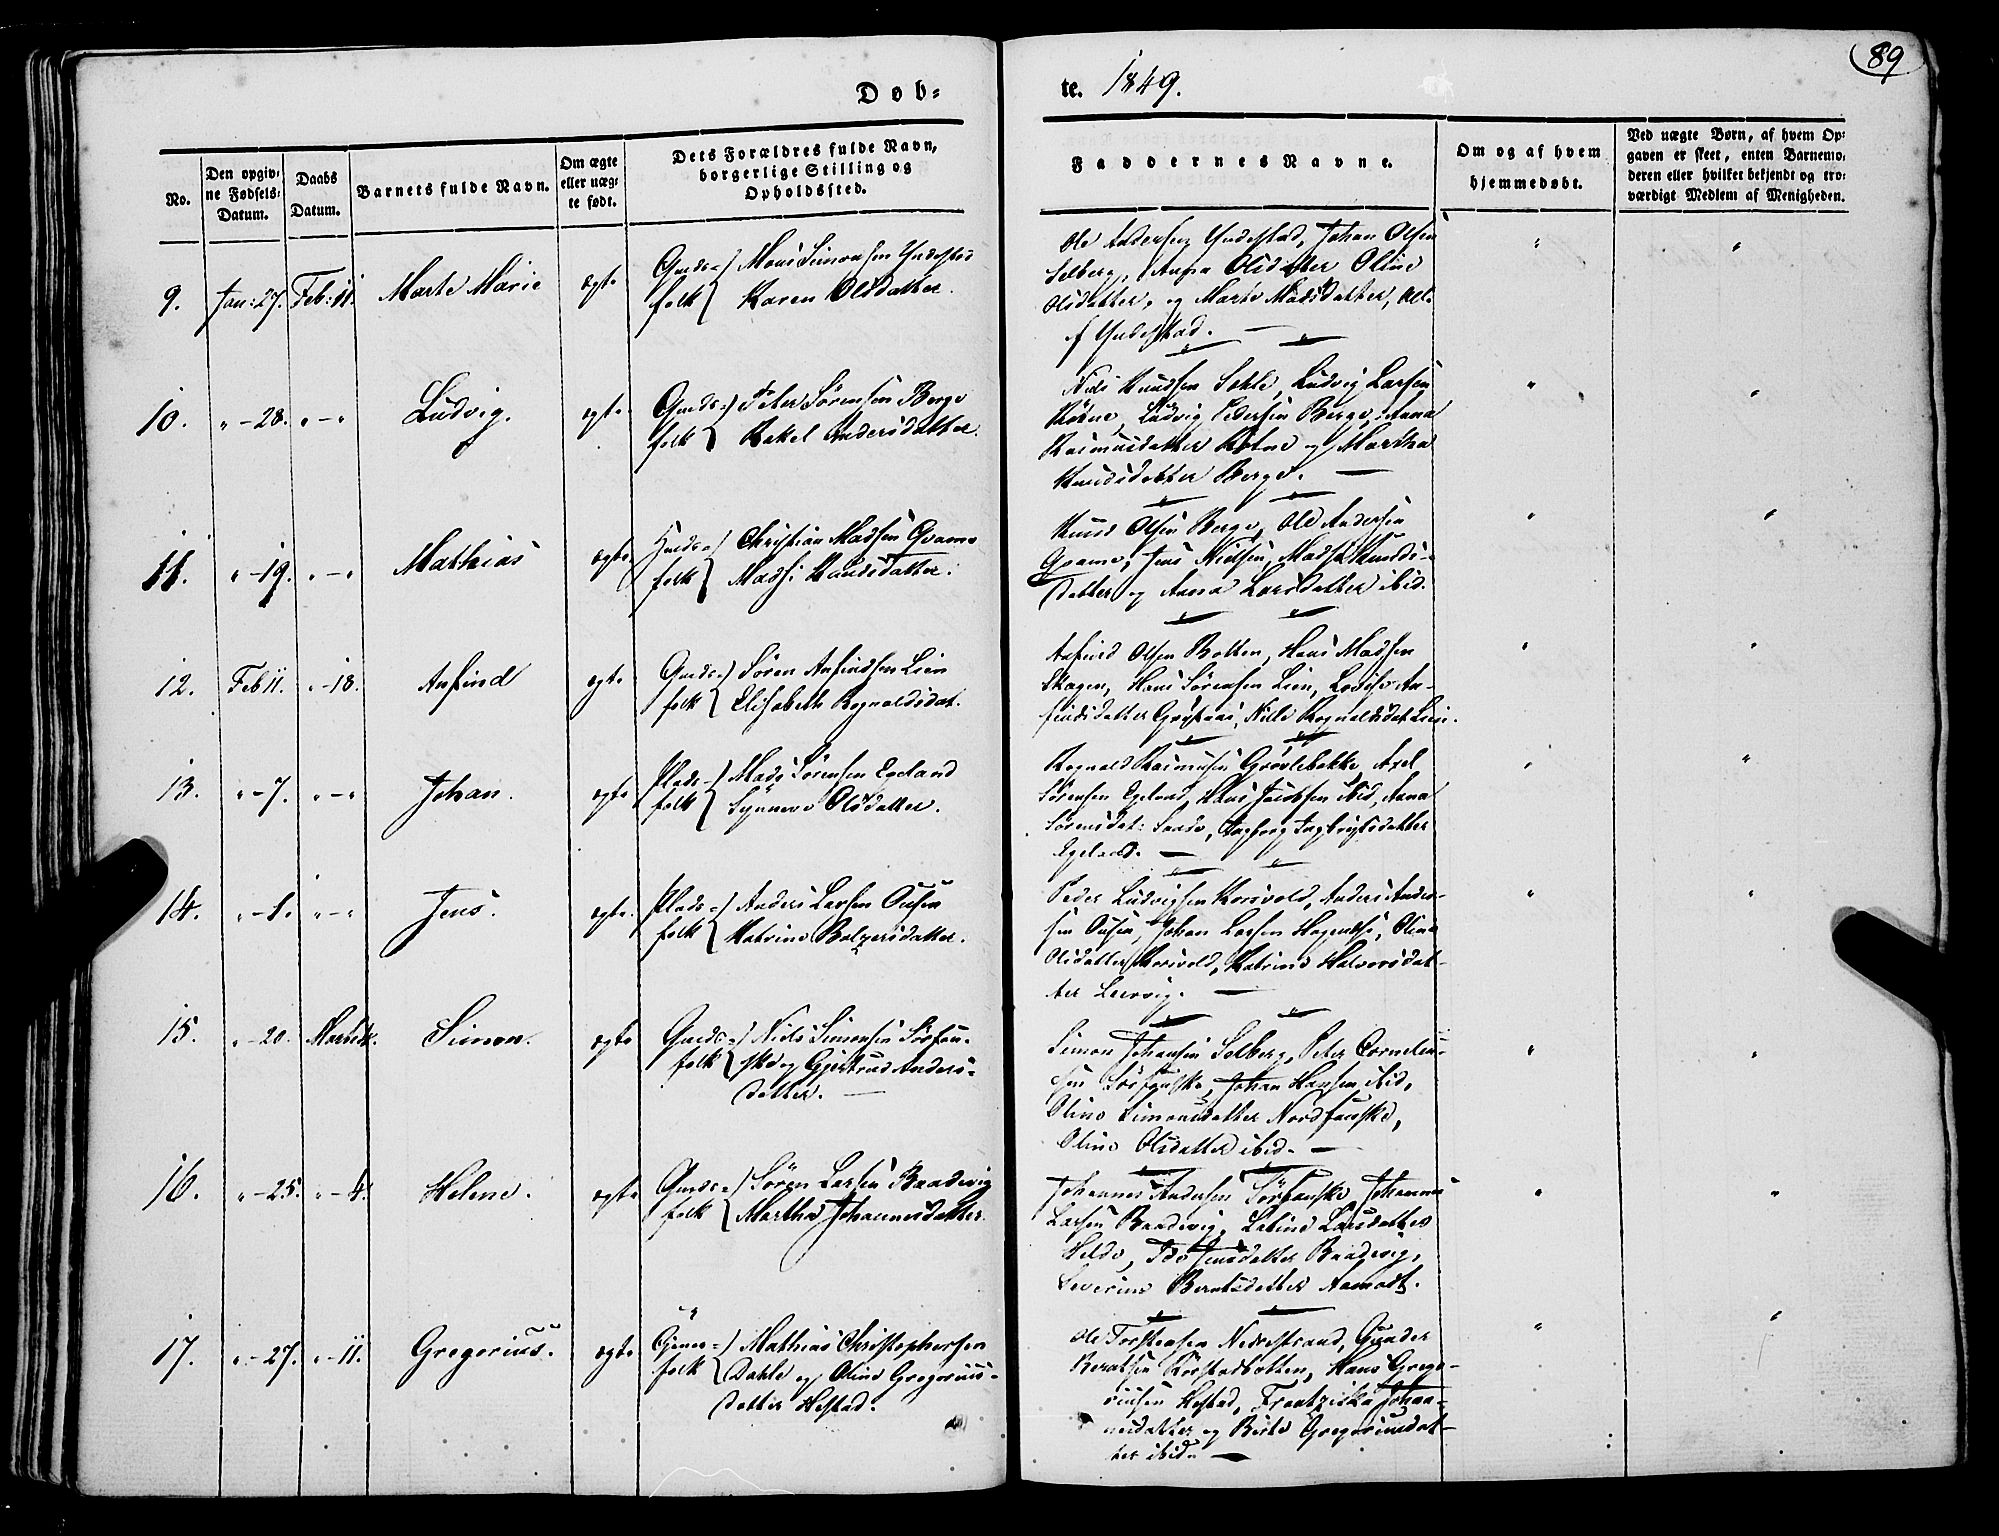 89
Døb=
te. 1849.
No.
Den opgiv=
ne Fødsels=
Datum.
Daabs
Datum.
Barnets fulde Navn.
Om ægte
eller uæg=
te født.
Dets Forældres fulde Navn,
borgerlige Stilling og
Opholdssted.
Faddernes Navne.
Om og af hvem
hjemmedøbt.
Ved uægte Børn, af hvem Op=
gaven er skeet, enten Barnemo=
deren eller hvilket bekjendt og tro=
værdigt Medlem af Menigheden.
9. Jan: 27. Feb: 11. Marte Marie ægte
Gaards=
folk
Mons Simonsen Yndestad
Karen Olsdatter.
Ole Andersen Yndestad, Johan Olsen
Solberg, Anna Olsdatter Oline
Olsdatter, og Marte Madsdatter, all
f Yndestad. —
10. " - 28. " - " Ludvig. ægte
Gaards=
folk
Peter Sørensen Berge
Rakel Andersdatter.
Niels Knudsen Ludvig Larsen
Ludvig Pedersen Berge, Anna
Rasmusdatter og Martha
Knudsdatter Berge. —
11. " - 19. " - " Mathias ægte
folk
Christian Madsen Qvame
Madsi Knudsdatter.
Knud Olsen Berge, Ole Andersen
Qvame, Jens Nielsen, Madsi Knuds-
datter og Anna Larsdatter ibid.
12. Feb 11. " - 18. Anfind ægte
Gaards=
folk
Søren Anfindsen Lien
Elisabeth Rognaldsdat.
Anfind Olsen Botten, Hans Madsen
Skagen, Hans Sørensen Lien, Lovise An-
findsdatter Nille Rognaldsdat Lien.
13. " - 7. " - " Johan. ægte
Plads=
folk
Mads Sørensen Egeland
Synneve Olsdatter.
Rognald Rasmusen Grøvlebakke, Axel
Sørensen Egeland, Hans Jacobsen ibid, Anna
Sørensdat: Sande, Ingborg Ingbrigtsdatter
Egeland. —
14. " - 1. " - " Jens. ægte.
Plads=
folk
Anders Larsen Ousen
Katrine Balzersdatter.
Peder Ludvigsen Korsvold, Anders Ander-
sen Ousen, Johan Larsen Oline
Olsdatter Korsvold, Katrine Halvorsdat-
ter Leervig. —
15. " - 20. Simon. ægte
Gaards=
folk
Niels Simonsen Sørfau-
ske og Gjertrud Anders-
datter. —
Simon Johansen Solberg, Peter Corneliu-
sen Sørfauske, Johan Hansen ibid,
Oline Simonsdatter Nordfauske,
Oline Olsdatter ibid. —
16. " - 25. " - 4. Helene. ægte
Gaards=
folk
Søren Larsen Baadsvig
Martha Johannesdatter.
Johannes Andersen Sørfauske, Johannes
Larsen Baadsvig, Larsdatter
Helde, Ide Jensdatter Baadsvig,
Severine Berntsdatter Aamodt.
17. " - 27. " - 11. Gregorius. ægte
folk
Mathias Christophersen
Dahle og Oline Gregorius-
datter Hestad.
Ole Torstensen Nedrestrand, Gunder
Berntsen Hans Grego-
riusen Hestad, Frantziska Johan-
nesdatter og Birte Gregoriusdat-
ter ibid. —